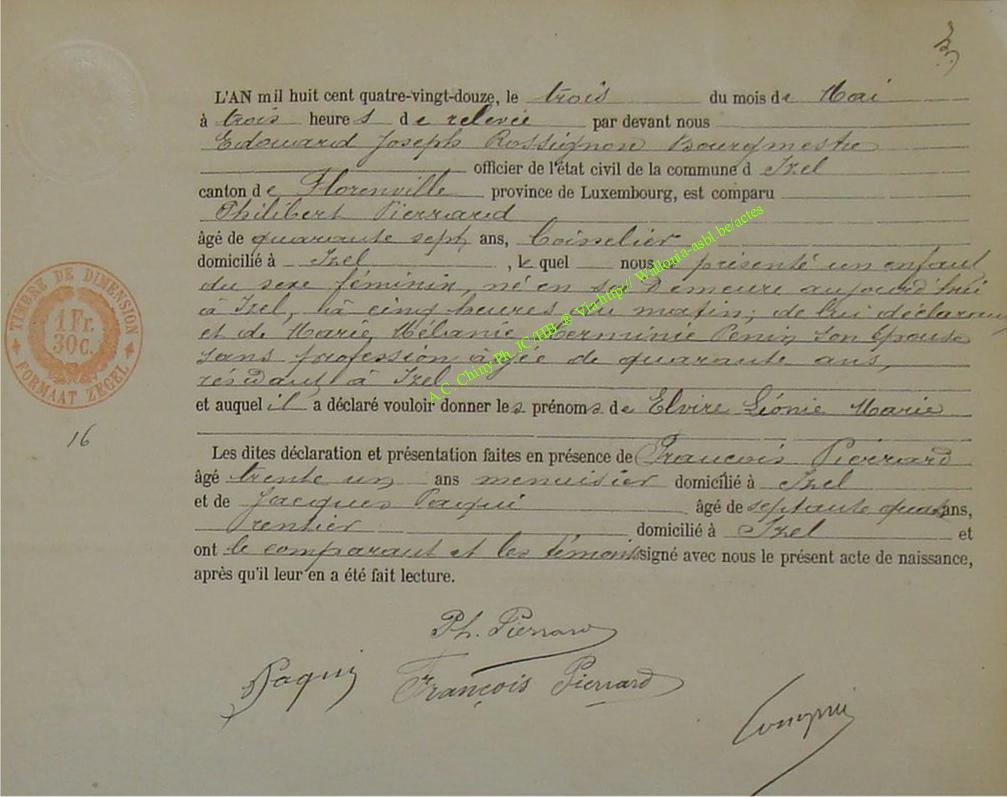 L'AN mil huit cent quatre-vingt-douze, le trois du mois de Mai
à trois heures de relevée par devant nous
Edouard Joseph Rossignon Bourgmestre
officier de l'état civil de la commune d Izel
canton de Florenville province de Luxembourg, est comparu
Philibert Pierrard
âgé de quarante sept ans,
domicilié à Izel, lequel nous a présenté un enfant
du sexe féminin, né en sa demeure aujourd'hui
à Izel, à cinq heures du matin; de lui déclarant
et de Marie Mélanie Herminie Penin son épouse
sans profession âgée de quarante ans,
résidant à Izel
et auquel il a déclaré vouloir donner les prénoms de Elvire Léonie Marie
Les dites déclaration et présentation faites en présence de François Pierrard
âgé trente un ans menuisier domicilié à Izel
et de Jacques Paqui âgé de septante quatre ans,
rentier domicilié à Izel et
ont le comparant et les témoins signé avec nous le présent acte de naissance,
après qu'il leur en a été fait lecture.
Ph. Pierrard
Paqui François Pierrard
TIMBRE DE DIMENSION
1 Fr.
30 C.
FORMAAT ZEGEL
16
A.C. Chiny Ph. JC/HB ® Via http// Wallonia-asbl.be/actes